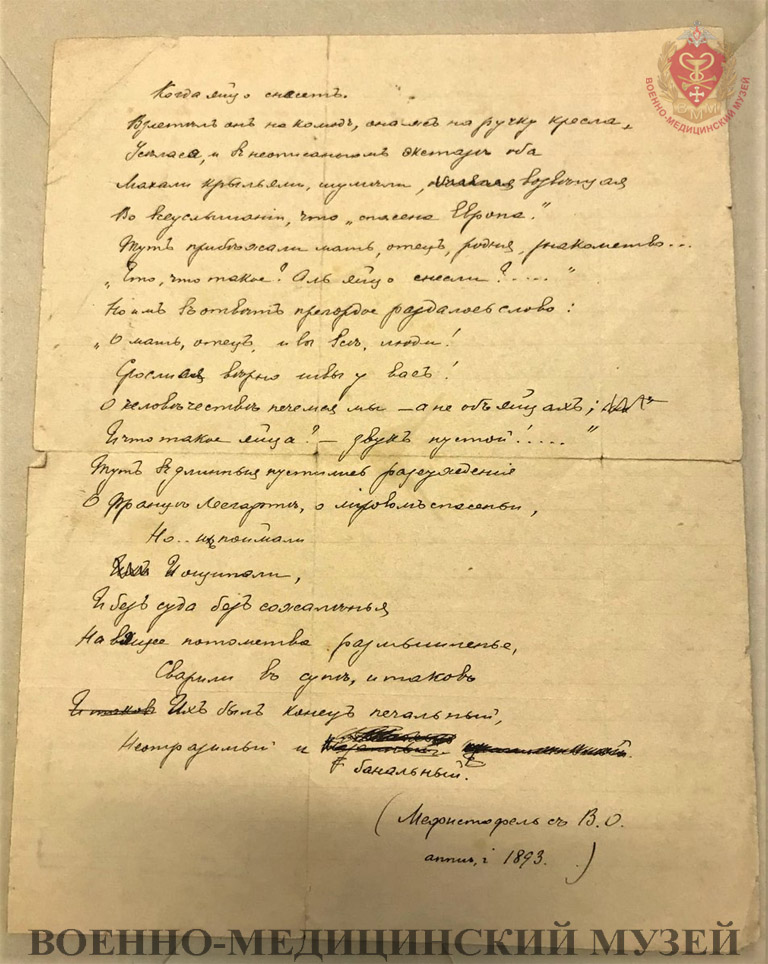 Когда яйцо снесетъ.
Взлетѣлъ онъ на комодъ, она жъ на ручку кресла,
Усѣлася, и въ неописанномъ экстазѣ оба
Махали крыльями, шумѣли, возвѣщая
Во всеуслышаніи, что „спасена Европа."
Тутъ прибѣжали мать, отецъ, родня, знакомство...
„Что, что такое? Аль яйцо снесли?....."
Но имъ въ отвѣтъ прегордое раздалось слово:
„О мать, отецъ, и вы всѣ, люди!
Срослися вѣрно швы у васъ!
О человѣчествѣ печемся мы — а не объ яйцахъ;
И что такое яйца? — звукъ пустой!....."
Тутъ въ длинныя пустились разсужденіе
О Францѣ Лесгафтѣ, о міровомъ спасеньи,
Но.. ихъ поймали
И ощипали,
И безъ суда безъ сожалѣнья
На вящее потомства размышленье,
Сварили въ супѣ, и таковъ
И таковъ Ихъ былъ конецъ печальный,
Неотразимый и
банальный.
(Мефистофель съ В.О.
1893.)
ВОЕННО-МЕДИЦИНСКИЙ МУЗЕЙ
ВММ
ВОЕННО-МЕДИЦИНСКИЙ МУЗЕЙ